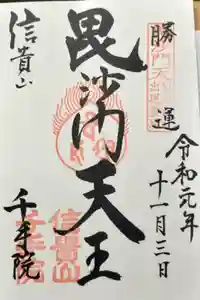 勝運
令和元年
十一月三日
毘沙門天王
信貴山
千手院
信貴山
千手院